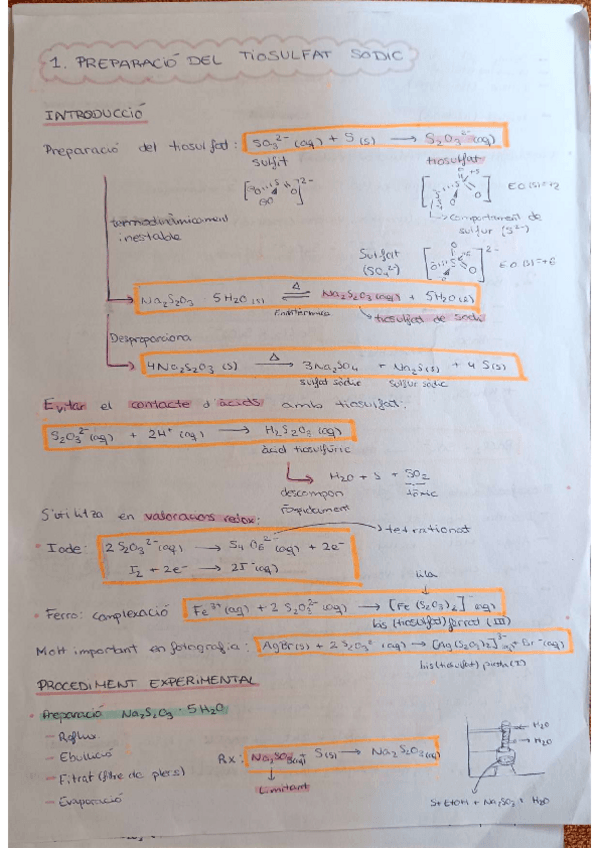 1. PREPARACIÓ DEL TIOSULFAT SÒDIC
INTRODUCCIÓ
Preparació del tiosulfat: SO₃²⁻ (aq) + S (s) → S₂O₃²⁻ (aq)
sulfit tiosulfat
E.O. (S) = +2
comportament de
sulfur (S²⁻)
termodinàmicament
inestable
Sulfat
(SO₄²⁻)
E.O. (S) = +6
Na₂S₂O₃ · 5H₂O (s) ⇌ Na₂S₂O₃ (aq) + 5H₂O (l)
Δ
Endotèrmica
tiosulfat de sodi
Desproporciona
4Na₂S₂O₃ (s) →Δ 3Na₂SO₄ + Na₂S (s) + 4 S(s)
sulfat sòdic sulfur sòdic
Evitar el contacte d'àcids amb tiosulfat:
S₂O₃²⁻ (aq) + 2H⁺ (aq) → H₂S₂O₃ (aq)
àcid tiosulfúric
H₂O + S + SO₂
descompon tòxic
ràpidament
S'utilitza en valoracions redox:
tetrationat
• Iode: 2 S₂O₃²⁻ (aq) → S₄O₆²⁻ (aq) + 2e⁻
I₂ + 2e⁻ → 2I⁻ (aq)
lila
• Ferro: complexació Fe³⁺ (aq) + 2 S₂O₃²⁻ (aq) → [Fe(S₂O₃)₂]⁻ (aq)
bis (tiosulfat) ferrat (III)
Molt important en fotografia: AgBr(s) + 2 S₂O₃²⁻ (aq) → [Ag(S₂O₃)₂]³⁻ (aq) + Br⁻ (aq)
bis(tiosulfat)
PROCEDIMENT EXPERIMENTAL
• Preparació Na₂S₂O₃ · 5H₂O
— Reflux
— Ebullició
— Filtrat (filtre de plecs)
— Evaporació
Rx: Na₂SO₃(aq) + S(s) → Na₂S₂O₃ (aq)
Limitant
H₂O
H₂O
S + EtOH + Na₂SO₃ + H₂O